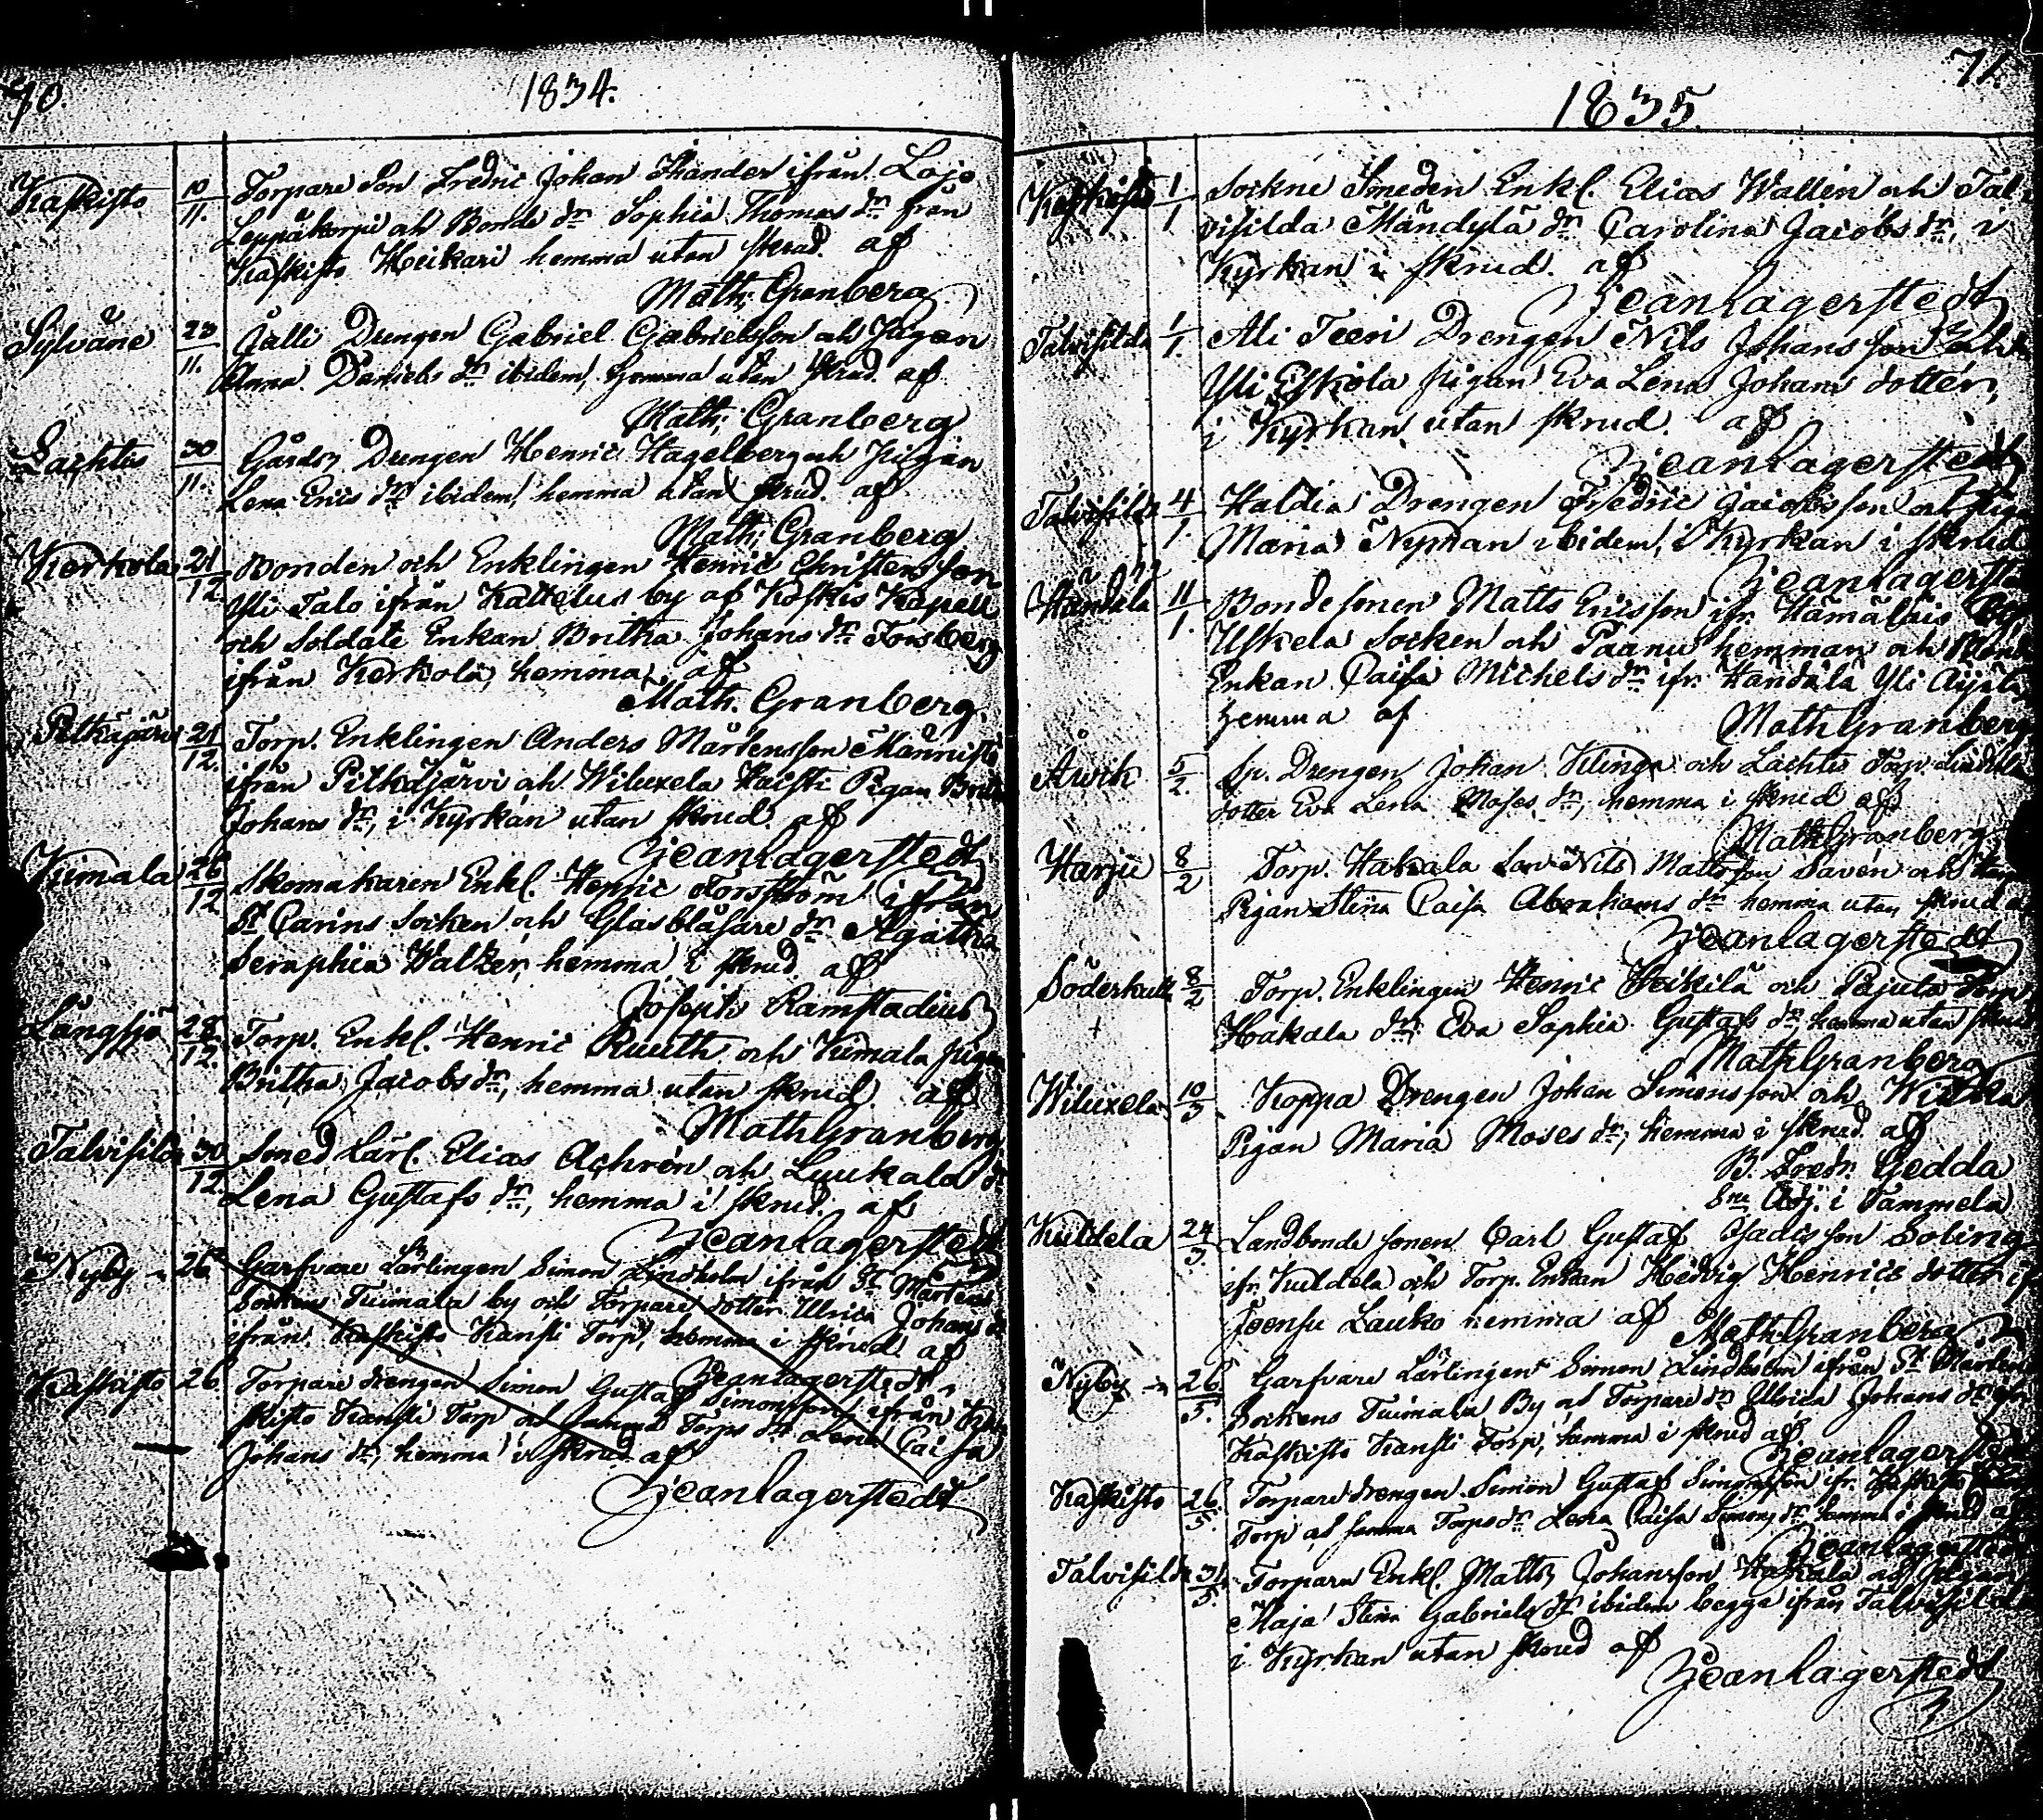 70.
1834.
Kaskisto 10/11. Torpare Son Fredric Johan Thander ifrån Lojo
Leppäkorpi och Bonde dr Sophia Thomas dr från
Kaskisto Heikari hemma utan skrud. af
Math: Granberg
Sylväne 23/11. Jälli Drengen Gabriel Gabrielsson och Pigan
Anna Daniels dr ibidem, hemma utan skrud. af
Math: Granberg
Lachtis 30/11. Gårds Drengen Henric Hagelberg och Pigan
Lena Erics dr ibidem, hemma utan skrud. af
Math: Granberg
Kerkola 21/12. Bonden och Enklingen Henric Christersson
Yli Talo ifrån Kattelus by af Koskis Kapell
och Soldate Enkan Britha Johans dr Forsberg
ifrån Kerkola, hemma, af
Math. Granberg.
Pitkäjärvi 21/12. Torp. Enklingen Anders Mårtensson Männistö
ifrån Pitkäjärvi och Wiluxela Haisti Pigan Brita
Johans dr, i Kyrkan utan skrud. af
Jean Lagerstedt
Kumala 26/12 Skomakaren Enkl. Henric Forsström ifrån
St Carins Socken och Glasblåsare dr Agatha
Seraphia Waltzer, hemma i skrud af
Joseph Ramstadius
Långsjö 28/12. Torp. Enkl. Henric Ruuth och Kumala Pigan
Britha Jacobs dr, hemma utan skrud. af
Math Granberg.
Talvisilda 30/12. Smed Lärl. Elias Achrén och Luukala dr
Lena Gustafs dr, hemma i skrud. af
Jean Lagerstedt
Nyby 26 Garfvare Lärlingen Simon Lindholm ifrån St Mårtens
Sockens Tuimala by och Torpare dotter Ulrica Johans dr
ifrån Kaskisto Kansti Torp, hemma i skrud af
Jean Lagerstedt
Kaskisto 26. Torpare drengen Simon Gustaf Simonsson ifrån Ka-
skisto Kansti Torp och samma Torps dr Lena Caisa
Johans dr, hemma i skrud af
Jean Lagerstedt
71.
1835.
Kaskisto 1/1 Sockne Smeden Enkl. Elias Wallén och Tal-
visilda Mändylä dr Carolina Jacobs dr, i
Kyrkan i skrud. af
Jean Lagerstedt
Talvisilda 1/1. Ali Teeri Drengen Nils Johansson och
Yli Eskola pigan Eva Lena Johans dotter,
i Kyrkan utan skrud. af
Jean Lagerstedt
Talvisilda 4/1. Haldia Drengen Fredric Jacobsson och Pigan
Maria Nyman ibidem, i Kyrkan i skrud
Jean Lagerstedt
Händälä 11/1. Bondesonen Matts Ericsson ifr. Hämäläis By
Uskela Socken och Paanu hemman och Bonde
Enkan Caisa Michels dr ifr. Händälä Yli Äijälä
hemma af Math Granberg
Åwik 5/2. Sp. Drengen Johan Kling och Lachtis Torp.
dotter Eva Lena Moses dr, hemma i skrud af
Math Granberg
Harju 8/2 Torp. Hakala Son Nils Mattsson Savén och
Pigan Stina Caisa Abrahams dr hemma utan skrud af
Jean Lagerstedt
Söderkulla 8/2 Torp. Enklingen Henric Heikilä och Pajula Torp
Hakala dr Eva Sophia Gustafs dr, hemma utan skrud
Math Granberg
Wiluxela 10/3 Koppa Drengen Johan Simonsson och
Pigan Maria Moses dr, hemma i skrud. af
B. Fredr. Gedda
Sne Adj. i Tammela
Kuldela 24/3. Landbonde sonen Carl Gustaf Esadisson Soling
ifr. Kuldela och Torp. Enkan Hedvig Henrics dotter ifr
Joensu Lauko hemma af Math Granberg
Nyby 26/5. Garfvare Lärlingen Simon Lindholm ifrån St Mårtens
Sockens Tuimala By och Torpare dr Ulrica Johans dr ifr
Kaskisto Kansti Torp, hemma i skrud af
Jean Lagerstedt
Kaskisto 26/5. Torpare drengen Simon Gustaf Simonsson ifr. Kaskisto
Torp och samma Torps dr Lena Caisa Simons dr hemma i skrud af
Jean Lagerstedt
Talvisilda 31/5. Torpare Enkl. Matts Johansson Hakala och Pigan
Maja Stina Gabriels dr ibidem begge ifrån Talvisilda
i Kyrkan utan skrud af
Jean Lagerstedt